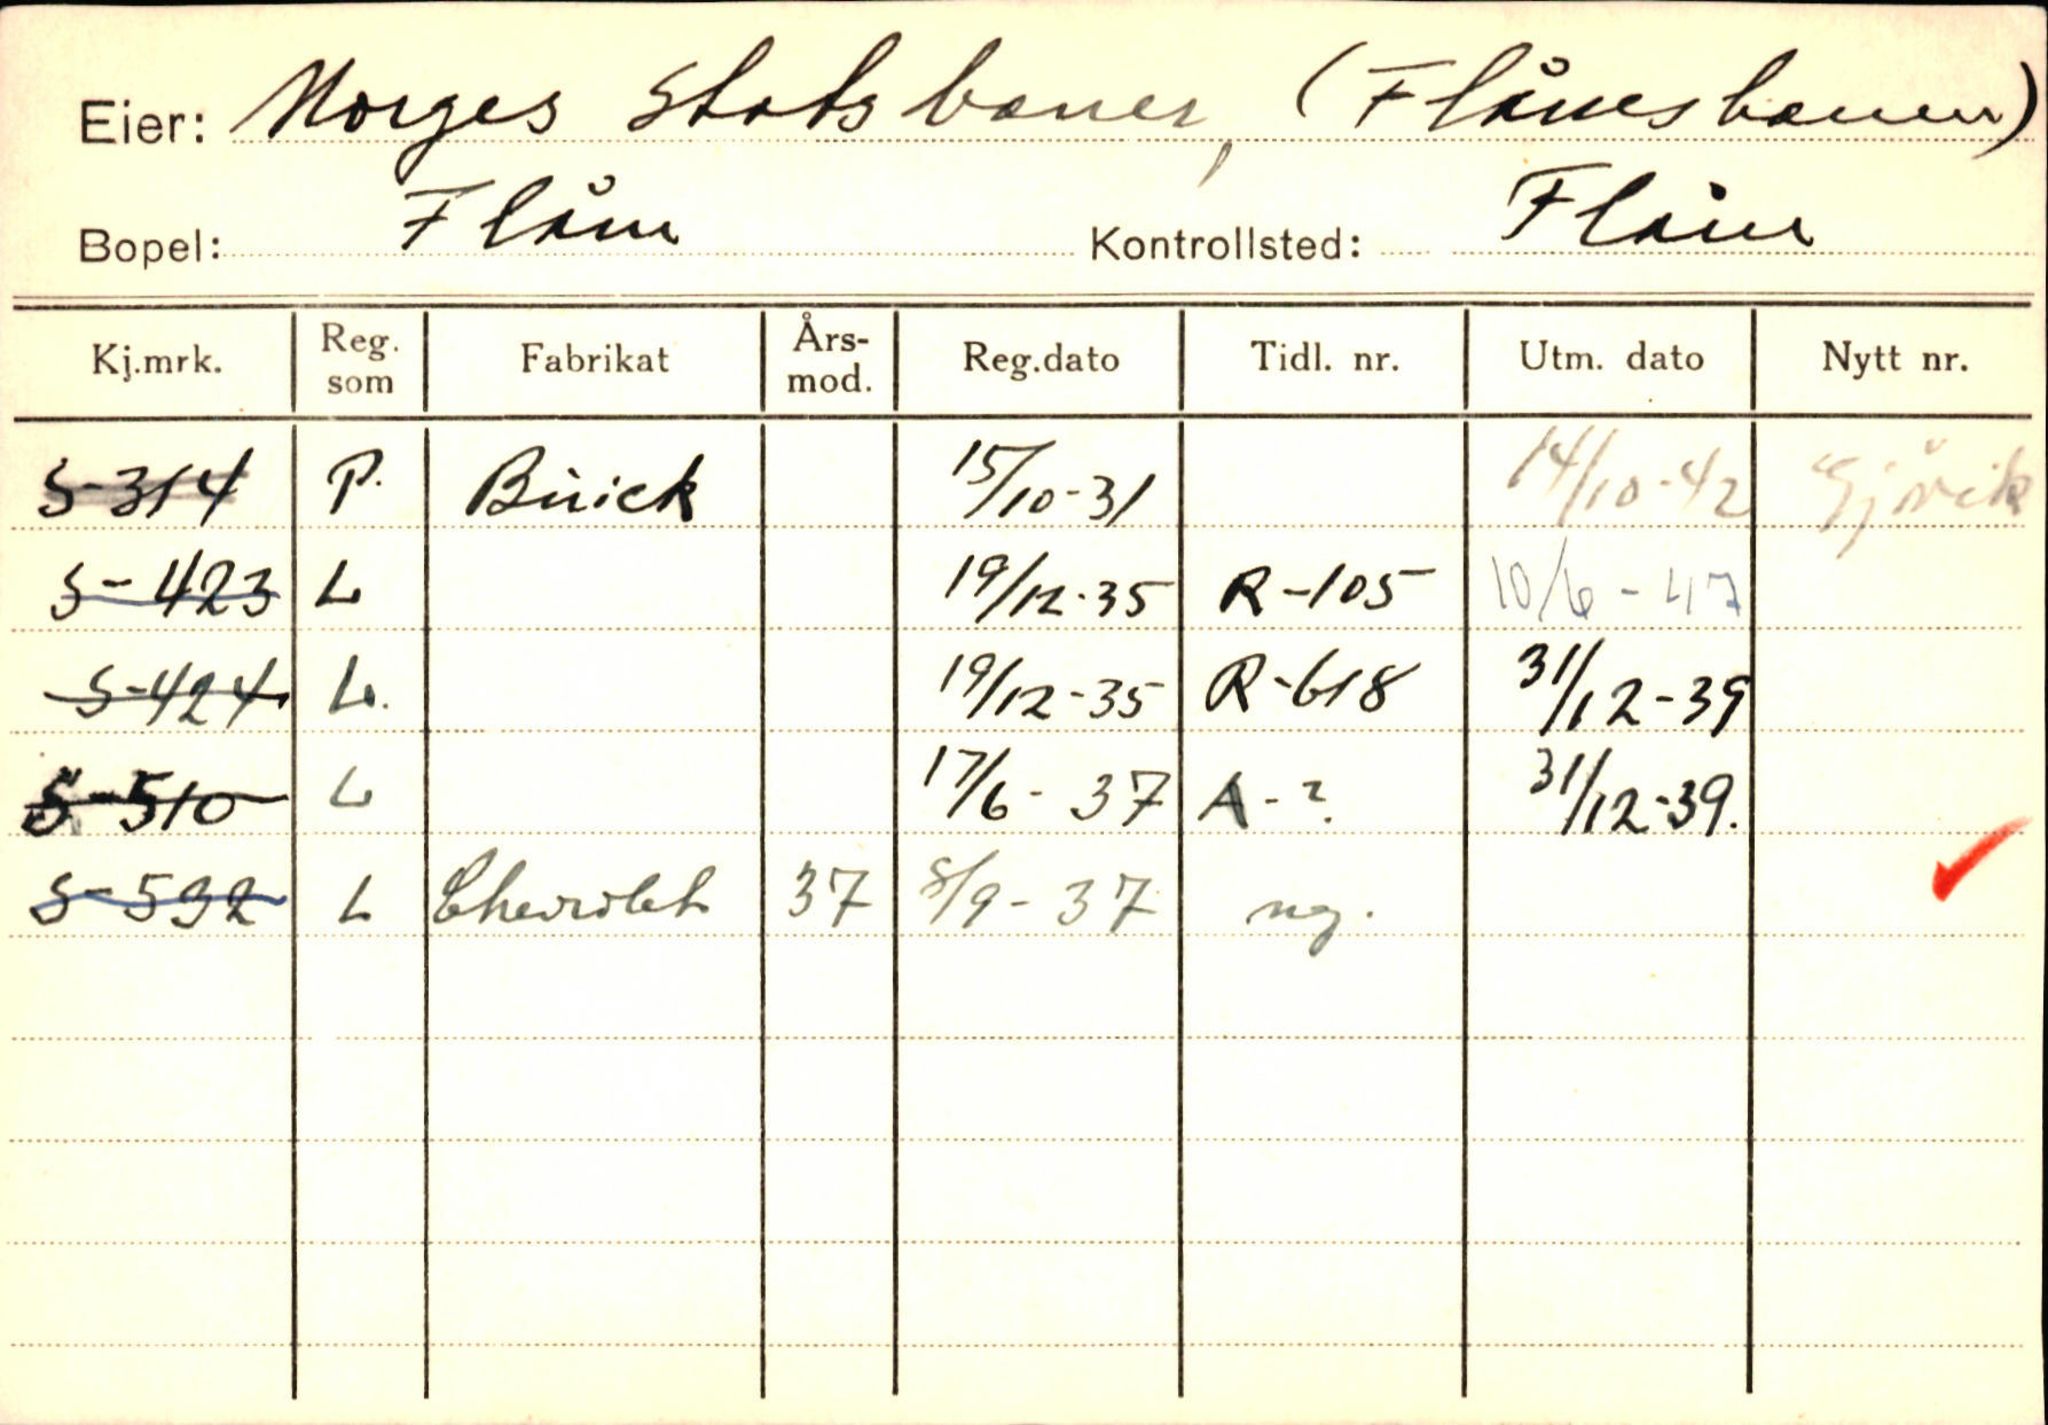 Eier: Norges Statsbaner, (Flåmsbanen)
Bopel: Flåm Kontrollsted: Flåm
Kj.mrk. Reg. som Fabrikat Års-mod. Reg.dato Tidl. nr. Utm. dato Nytt nr.
S-314 P. Buick 15/10-31 14/10-42 Gjøvik
S-423 L 19/12-35 R-105 10/6-47
S-424 L. 19/12-35 R-618 31/12-39
S-510 L 17/6-37 A-? 31/12-39.
S-592 L Chevrolet 37 8/9-37 ny.